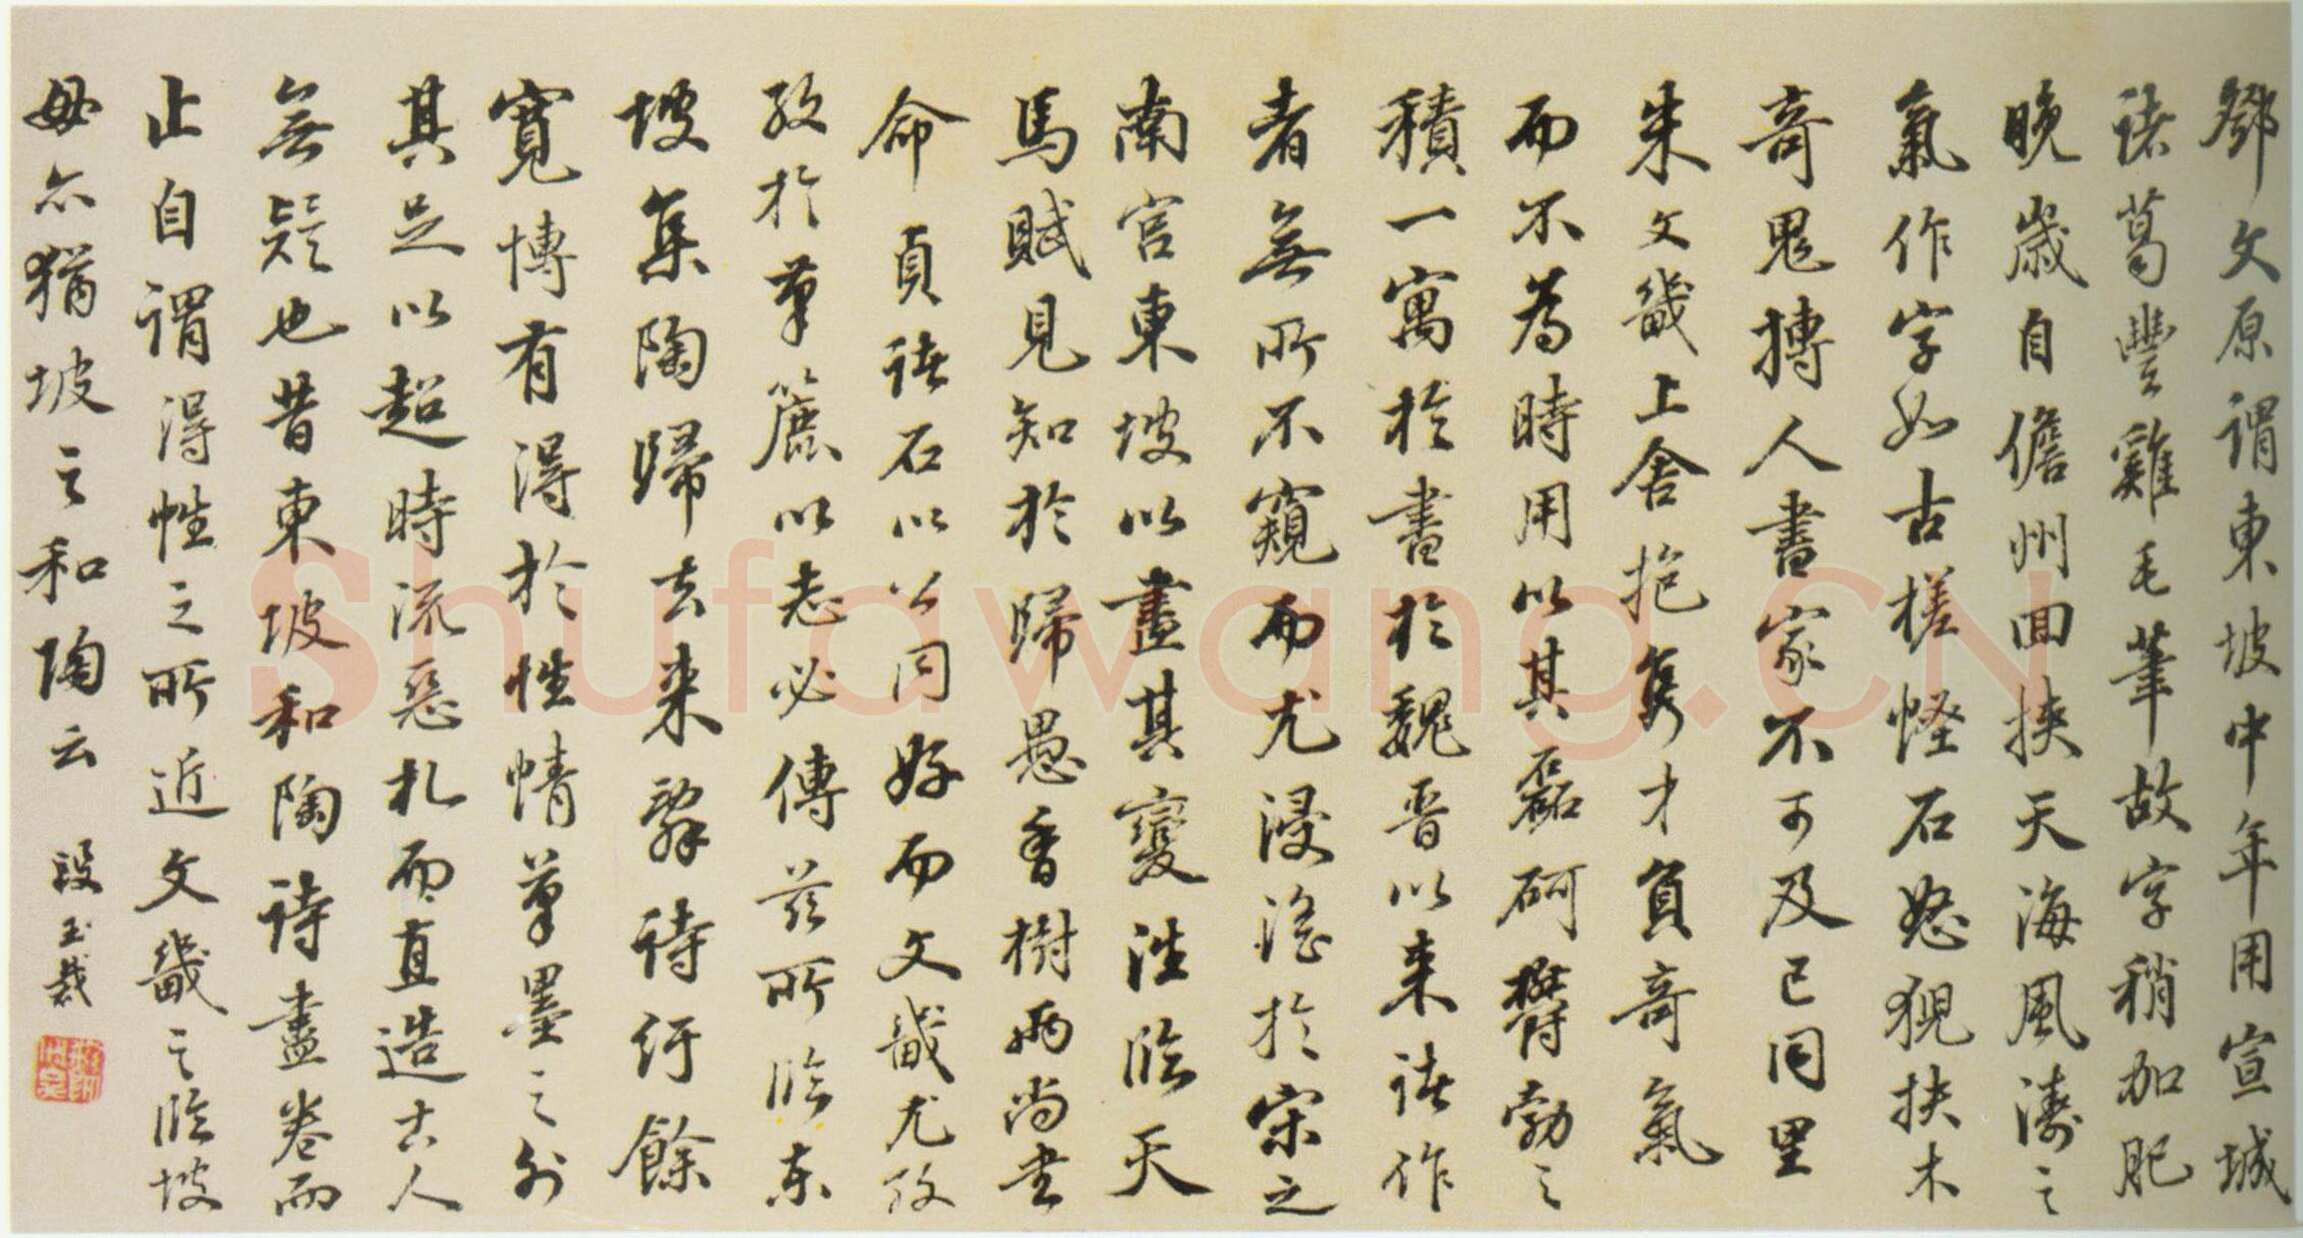 鄧文原謂東坡中年用宣城
諸葛豐雞毛筆故字稍加肥
晚歲自儋州回挾天海風濤之
氣作字如古槎怪石怒猊扶木
奇鬼搏人書家不可及已同里
朱文畿上舍抱雋才負奇氣
而不為時用以其磊砢欝勃之
積一寓於書於魏晋以来諸作
者無所不窺而尤浸淫於宋之
南宮東坡以盡其變法臨天
馬賦見知於歸愚香樹兩尚書
命貢諸石以公同好而文畿尤孜
孜於筆簏以志必傳茲所臨東
坡集陶歸去来辭詩紆餘
寬博有得於性情筆墨之外
其足以超時流惡札而直造古人
無疑也昔東坡和陶詩盡卷而
止自謂得性之所近文畿之臨坡
毋亦猶坡之和陶云 段玉裁
Shufawang.CN